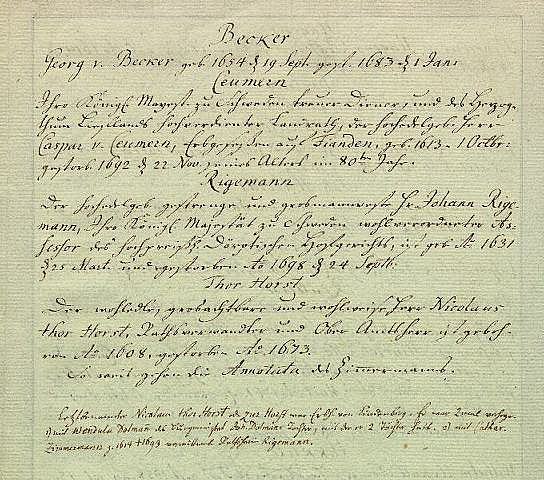 Becker
Georg v. Becker geb. 1654 d 19 Sept. gest. 1683 d 1 Jan:
Ceumern
Ihro Königl. Mayest. zu Schweden treuer Diener, und des Herzog-
thum Lieflands hochverdienter Landrath, der hochedelgeb. Herr
Caspar v. Ceumern, Erbgesessen auf Fianden, geb. 1613 1 Octbr:
gestorb. 1692 d 22 Nov. seines Alters im 80ten Jahr.
Rigemann
Der hochedelgeb. gestrenge und großmannveste Hr. Johann Rige-
mann, Ihro Königl. Majestät zu Schweden wohlverordneter As-
sessor des hochpreißl. Dörptischen Hofgerichts, ist geb. Ao 1631
d 25 Mart. und gestorben Ao 1698 d 24 Septb:
Thor Horst
Der wohledle, großachtbare und wohlweise Herr Nicolaus
thor Horst, Rathsverwandter und Ober Amtsherr ist geboh-
ren Ao. 1608, gestorben Ao. 1673.
So weit gehen die Annotata des Zimmermanns.
Nicolaus thor Horst
1) mit Wendula Dolmann des Bürgermeister Joh. Dolmans Tochter, mit der er 2 Töchter 2) mit Cathar.
Zimmermann g. 1614 † 1693 Rigemann.